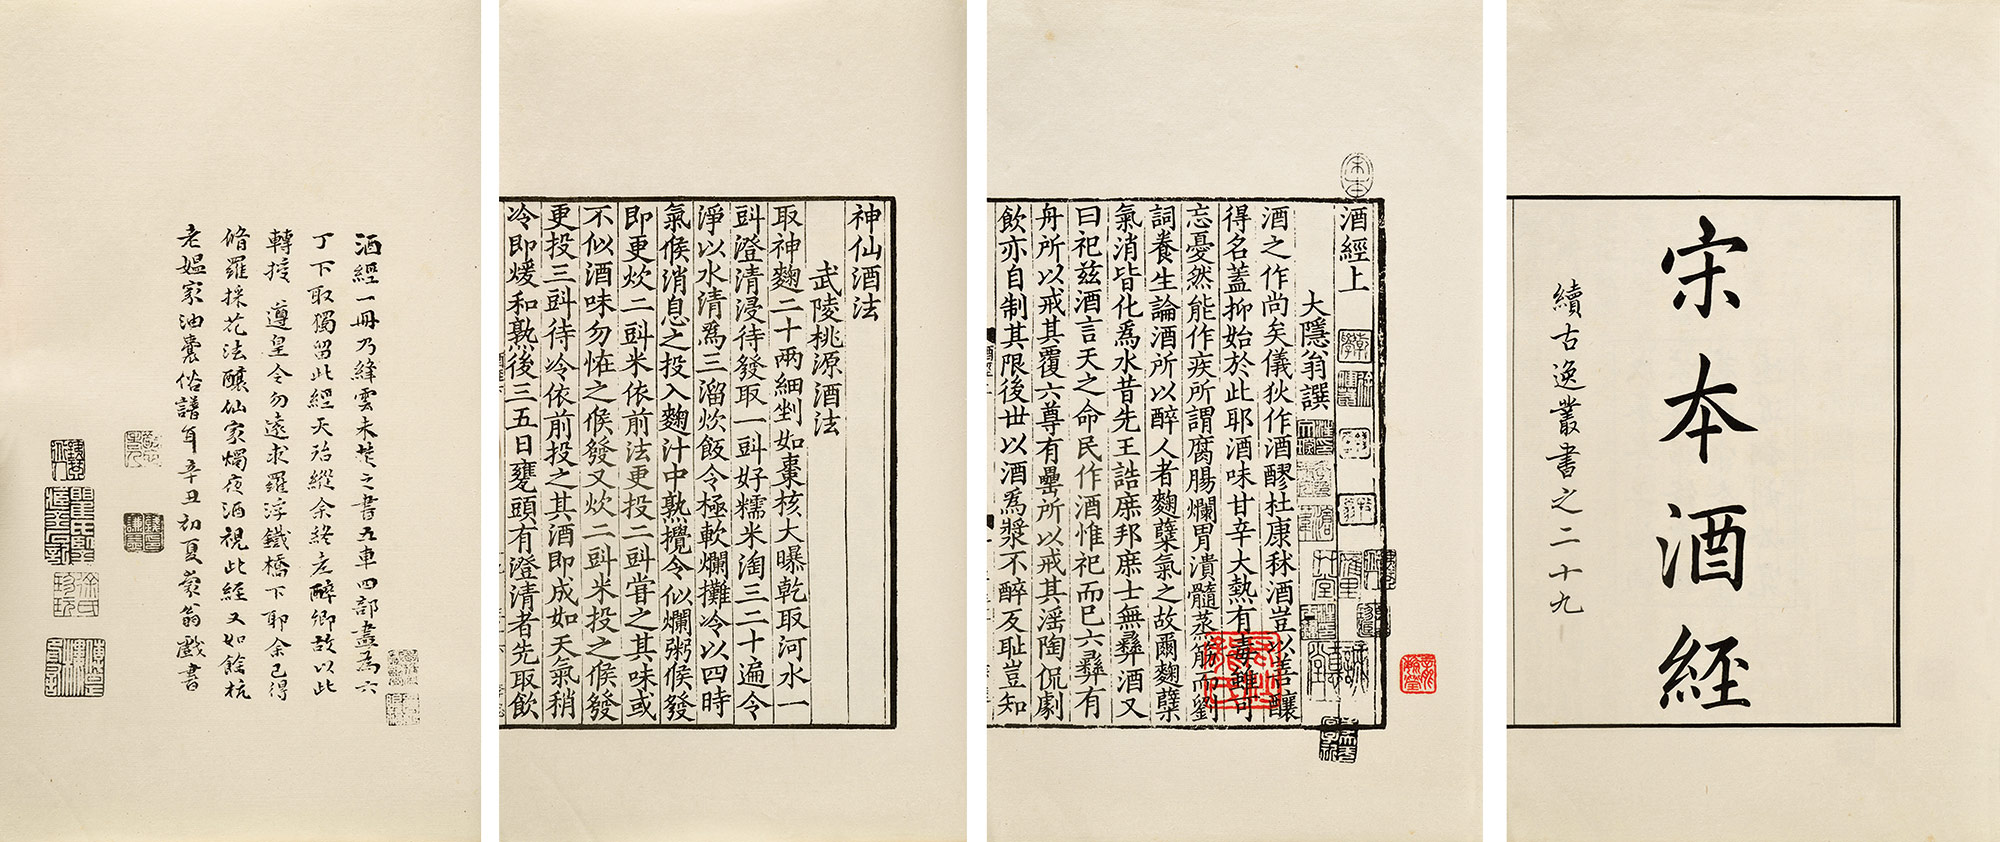 宋本酒經
續古逸叢書之二十九
宋本
酒經上
大隱翁譔
酒之作尚矣儀狄作酒醪杜康秫酒豈以善釀
得名蓋抑始於此耶酒味甘辛大熱有毒雖可
忘憂然能作疾所謂腐腸爛胃潰髓蒸筋而劉
詞養生論酒所以醉人者麴糵氣之故爾麴糵
氣消皆化爲水昔先王誥庶邦庶士無彝酒又
曰祀茲酒言天之命民作酒惟祀而已六彝有
舟所以戒其覆六尊有罍所以戒其淫陶侃劇
飲亦自制其限後世以酒爲漿不醉反恥豈知
神仙酒法
武陵桃源酒法
取神麴二十兩細剉如棗核大曝乾取河水一
㪷澄清浸待發取一㪷好糯米淘三二十遍令
淨以水清爲三溜炊飯令極軟爛攤冷以四時
氣候消息之投入麴汁中熟攪令似爛粥候發
即更炊二㪷米依前法更投二㪷甞之其味或
不似酒味勿恠之候發又炊二㪷米投之候發
更投三㪷待冷依前投之其酒即成如天氣稍
冷即煖和熟後三五日甕頭有澄清者先取飲
酒經一冊乃絳雲未焚之書五車四部盡爲六
丁下取獨留此經天殆縱余終老醉鄉故以此
轉授遵皇令勿遠求羅浮鐵橋下耶余已得
脩羅採花法釀仙家燭夜酒視此經又如餘杭
老媼家油囊俗譜耳辛丑初夏蒙翁戲書